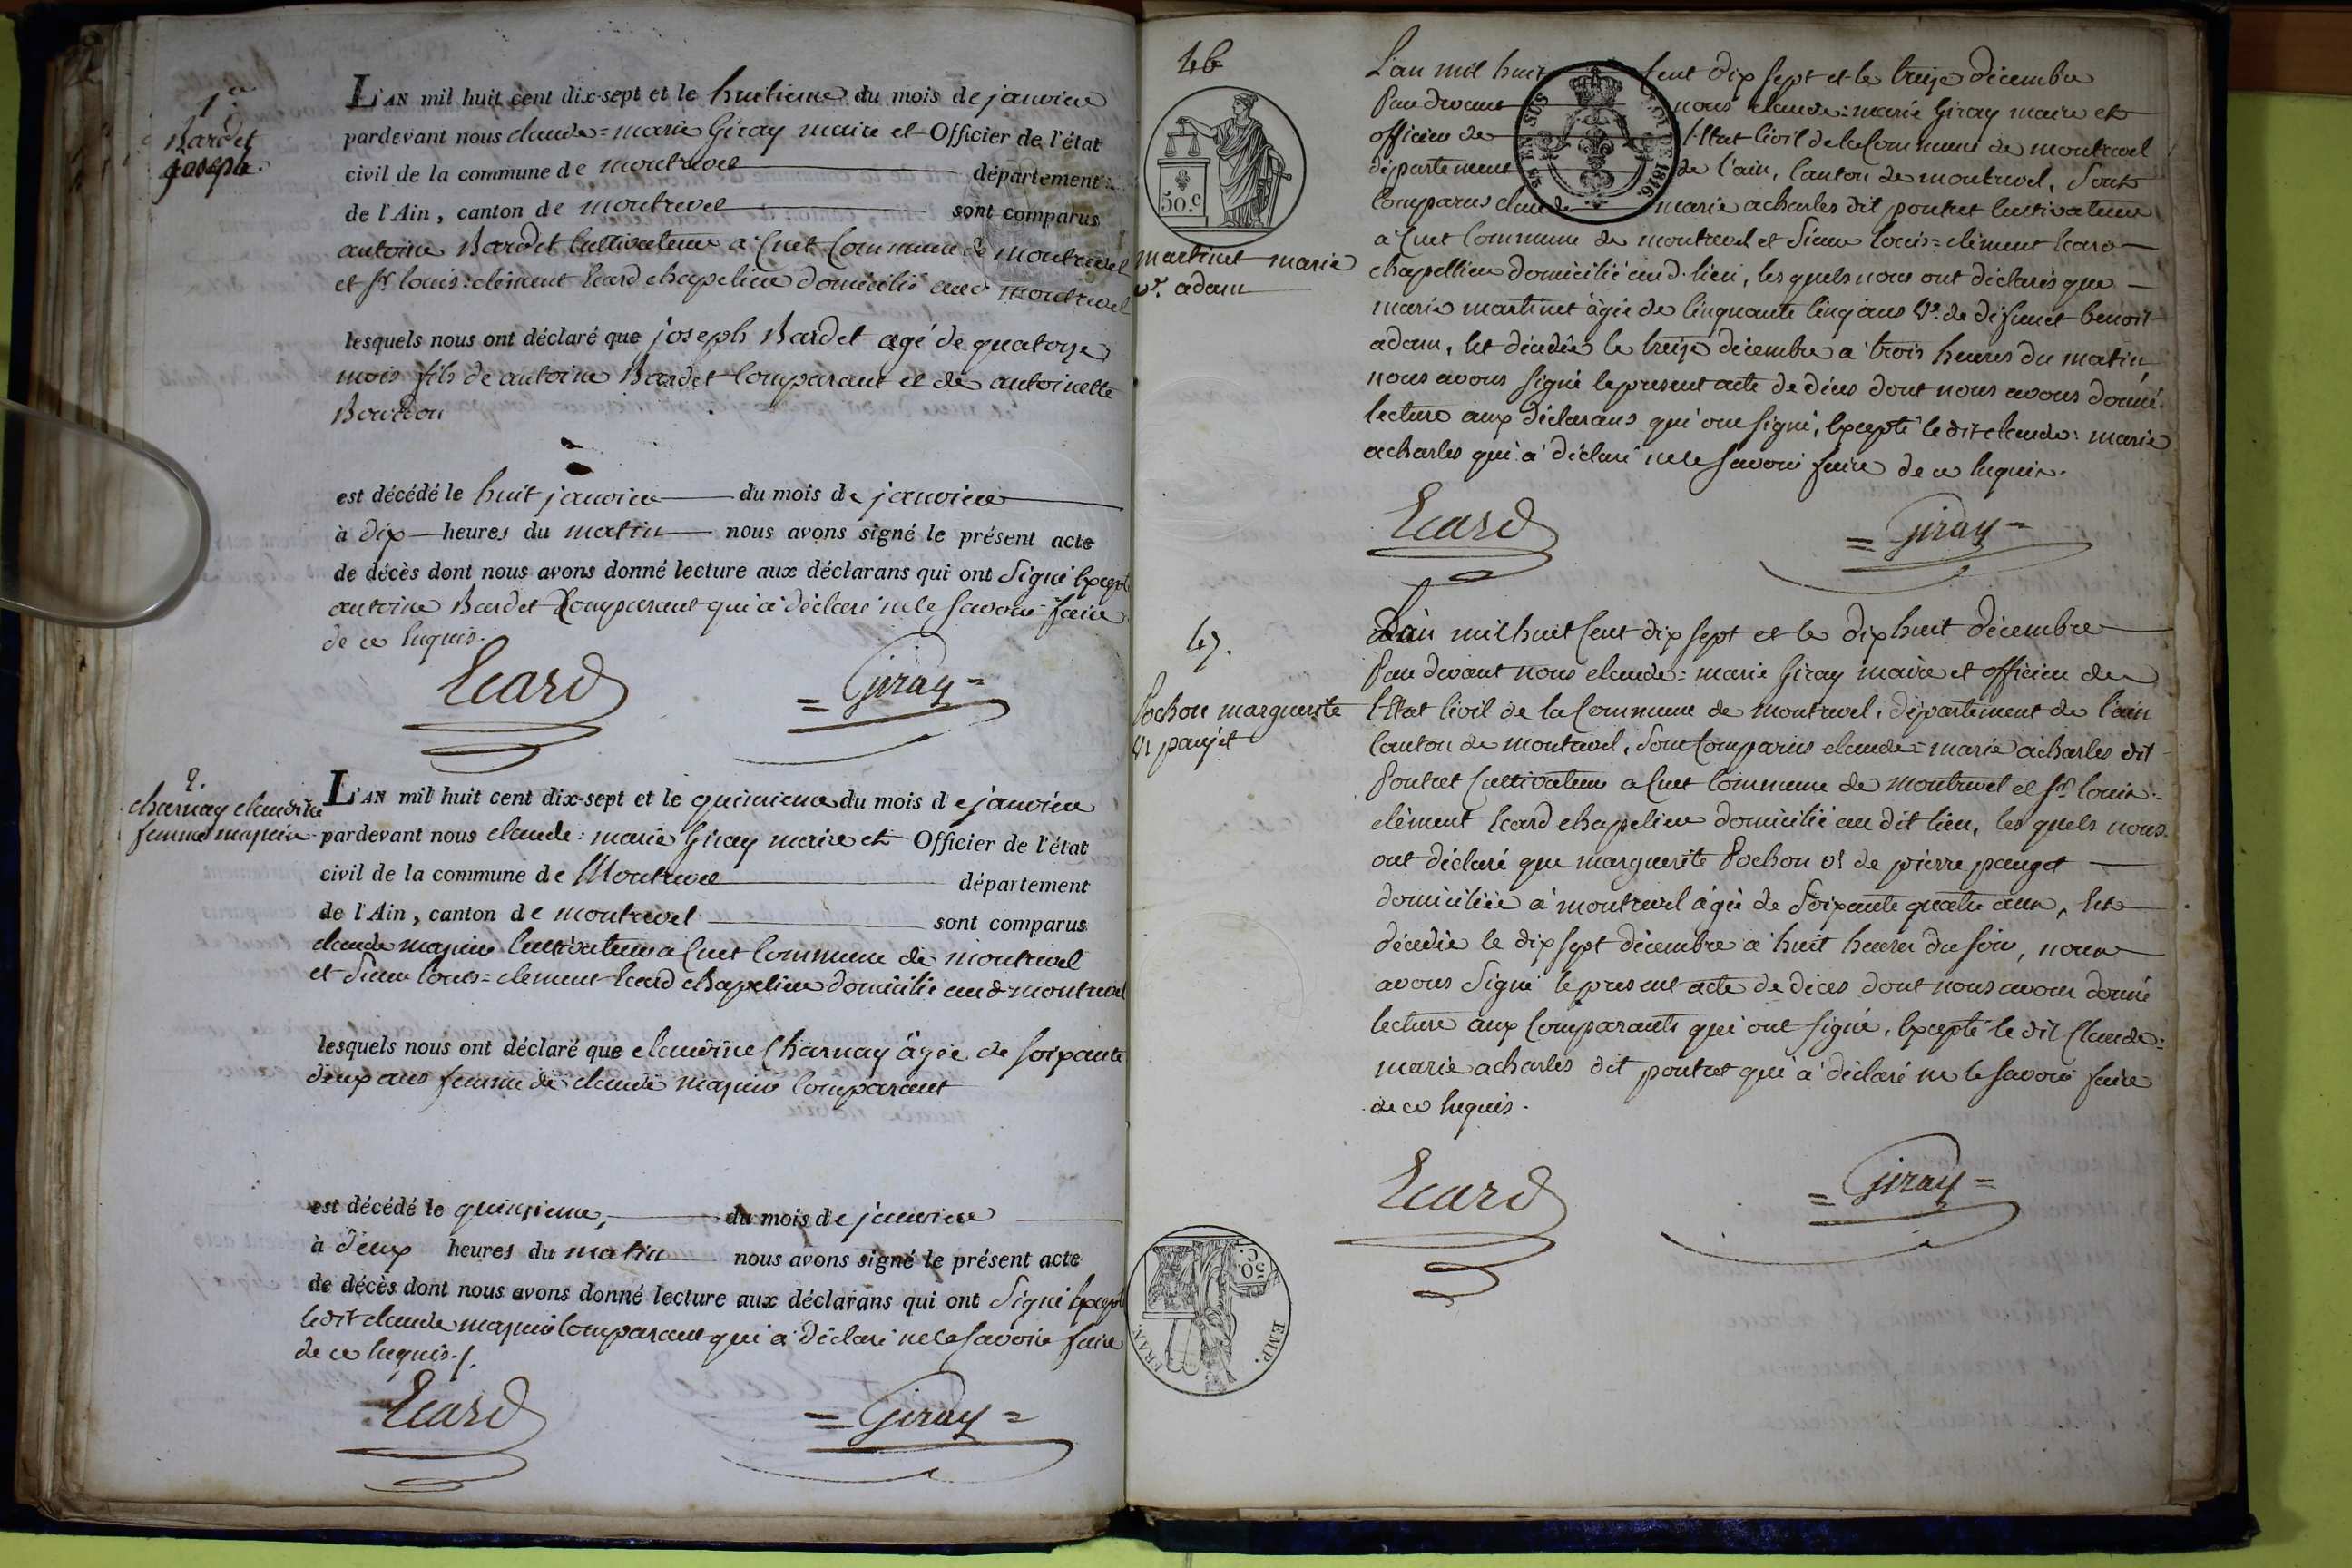 1.er
Bardet
joseph.
L'AN mil huit cent dix-sept et le huitieme du mois de janvier
pardevant nous claude=marie Giray maire et Officier de l'état
civil de la commune de montrevel département
de l'Ain, canton de montrevel sont comparus
antoine Bardet Cultivateur a Cuet Commune de montrevel
et Sr. louis=clément Ecard chapelier domicilié aud montrevel
lesquels nous ont déclaré que joseph Bardet agé de quatorze
mois fils de antoine Bardet Comparant et de antoinette
Bourdon
est décédé le huit janvier du mois de janvier
à dix heures du matin nous avons signé le présent acte
de décès dont nous avons donné lecture aux déclarans qui ont Signé Excepté
antoine Bardet Comparant qui a déclaré ne le Savoir faire
de ce Enquis.
Ecard =Giray=
2.
charnay claudine
femme mazuir
L'AN mil huit cent dix-sept et le quinzieme du mois de janvier
pardevant nous claude=marie Giray maire et Officier de l'état
civil de la commune de Montrevel département
de l'Ain, canton de montrevel sont comparus
claude mazuir Cultivateur a Cuet Commune de montrevel
et Sieur louis=clément Ecard chapelier domicilié aud montrevel
lesquels nous ont déclaré que claudine Charnay âgée de Soixante
deux ans femme de claude mazuir Comparant
est décédé le quinzieme, du mois de janvier
à deux heures du matin nous avons signé le présent acte
de décès dont nous avons donné lecture aux déclarans qui ont Signé Excepté
ledit claude mazuir Comparant qui a déclaré ne le Savoir faire
de ce Enquis./.
Ecard =Giray=
46
50.c
martinet marie
ve. adam
25 EN SUS
LOI DE 1816.
L'an mil huit Cent dix Sept et le treize décembre
Par devant nous claude=marie Giray maire et
officier de l'Etat Civil de la Commune de montrevel
département de l'ain, Canton de montrevel, Sont
Comparus claude marie acharles dit pontet Cultivateur
a Cuet Commune de montrevel et Sieur louis=clément Ecard
chapellier domicilié aud. lieu, les quels nous ont déclarés que
marie martinet âgée de Cinquante Cinq ans Ve. de défunct benoit
adam, Est décédée le treize décembre a trois heures du matin,
nous avons Signé le present acte de déces dont nous avons donné
lecture aux déclarans qui ont Signé, Excepté le dit claude=marie
acharles qui a déclaré ne le Savoir faire de ce Enquis.
Ecard =Giray=
47.
Pochon marguerite
ve panget
L'an mil huit Cent dix Sept et le dix huit décembre
Par devant nous claude=marie Giray maire et officier de
l'Etat Civil de la Commune de montrevel, département de l'ain
Canton de montrevel, Sont Comparus claude=marie acharles dit
Pontet Cultivateur a Cuet Commune de montrevel et Sr. louis=
clément Ecard chapelier domicilié au dit lieu, les quels nous
ont déclaré que marguerite Pochon ve de pierre panget
domiciliée a montrevel agée de Soixante quatre ans, Est
décédée le dix Sept décembre a huit heures du Soir, nous
avons Signé le present acte de déces dont nous avons donné
lecture aux Comparants qui ont Signé, Excepté le dit Claude=
marie acharles dit pontet qui a déclaré ne le Savoir faire
de ce Enquis.
Ecard =Giray=
50.C.
EMP. FRAN.